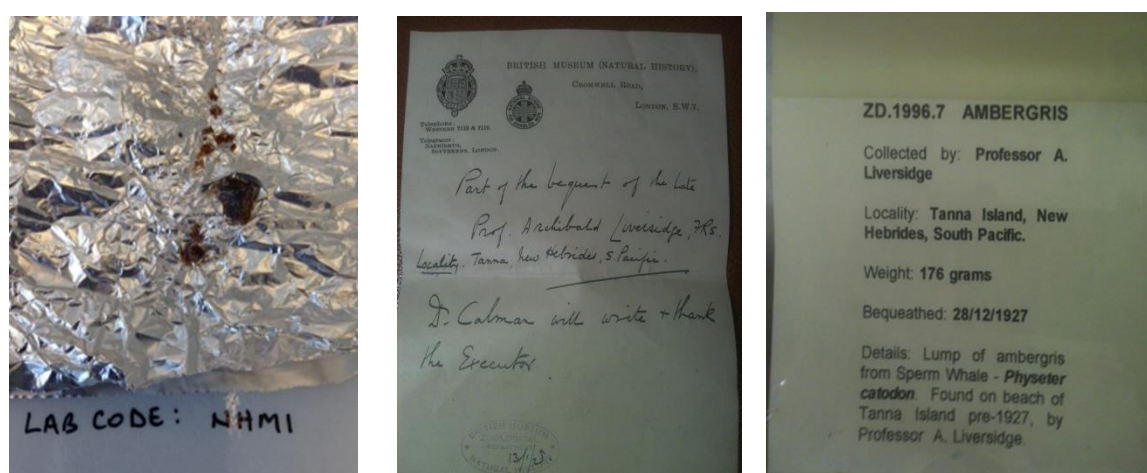 LAB CODE: NHM1
BRITISH MUSEUM (NATURAL HISTORY),
CROMWELL ROAD,
LONDON, S.W.7.
Telephone:
Telegrams:
LONDON.
Part of the bequest of the late
Prof. Archibald Liversidge, FRS.
Locality. Tanna New Hebrides, S. Pacific.
Dr Calman will write + thank
the Executor
BRITISH MUSEUM
NATURAL
ZD.1996.7 AMBERGRIS
Collected by: Professor A.
Liversidge
Locality: Tanna Island, New
Hebrides, South Pacific.
Weight: 176 grams
Bequeathed: 28/12/1927
Details: Lump of ambergris
from Sperm Whale - Physeter
catodon. Found on beach of
Tanna Island pre-1927, by
Professor A. Liversidge.